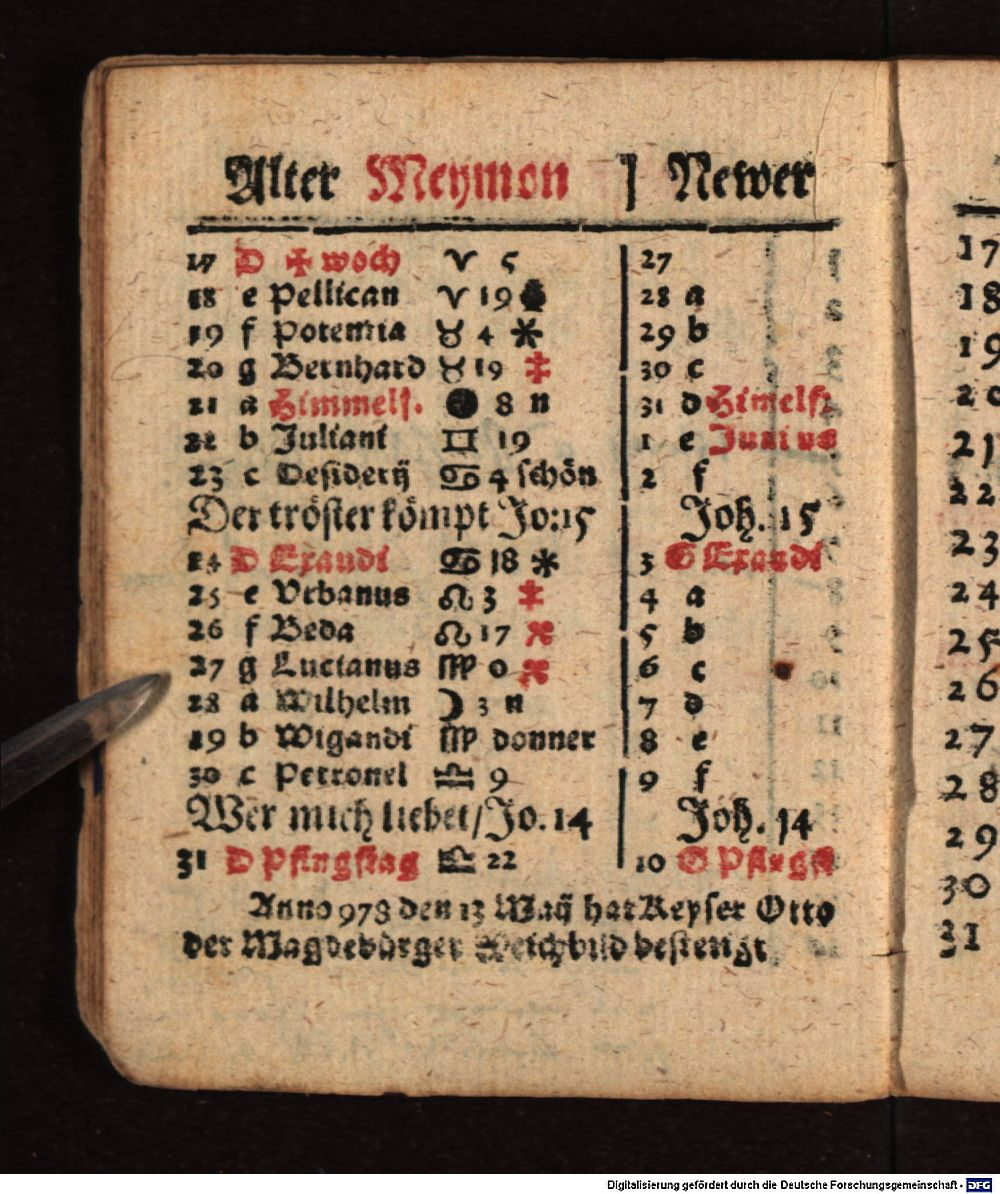 Alter Meymon ] Newer
17 D ✠ woch ♈ 5 27
18 e Pellican ♈ 19 28 a
19 f Potentia ♉ 4 ✱ 29 b
20 g Bernhard ♉ 19 ‡ 30 c
21 a Himmelf. ● 8 n 31 d Himelf:
22 b Juliani ♊ 19 1 e Junius
23 c Desiderij ♋ 4 schön 2 f
Der tröster kömpt Jo:15 Joh. 15
24 D Exaudi ♋ 18 ✱ 3 G Exaudi
25 e Vrbanus ♌ 3 ‡ 4 a
26 f Beda ♌ 17 5 b
27 g Lucianus ♍ 0 6 c
28 a Wilhelm ☽ 3 n 7 d
19 b Wigandi ♍ donner 8 e
30 c Petronel ♎ 9 9 f
Wer mich liebet/Jo. 14 Joh. 14
31 D Pfingstag ♎ 22 10 G Pfingst
Anno 973 den 13 Maij hat Keyser Otto
der Magdebürger Weichbild bestetigt
17
18
19
20
21
22
23
24
25
26
27
28
29
30
31
Digitalisierung gefördert durch die Deutsche Forschungsgemeinschaft - DFG